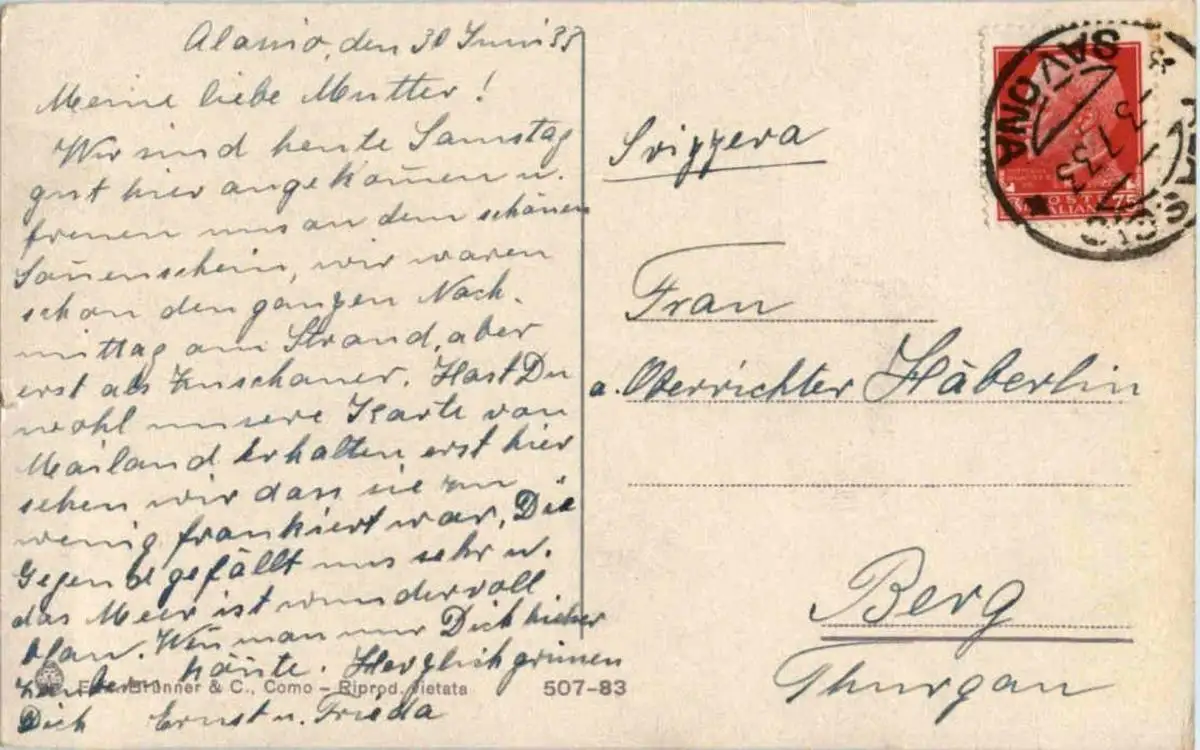 Alassio, den 30 Juni 33
Meine liebe Mutter!
Wir sind heute Samstag
gut hier angekom̄en u.
freuen uns an dem schönen
Son̄enschein, wir waren
schon den ganzen Nach-
mittag am Strand, aber
erst als Zuschauer. Hast Du
wohl unsere Karte von
Mailand erhalten erst hier
sehen wir dass sie zu
wenig frankiert war. Die
Gegend gefällt uns sehr u.
das Meer ist wundervoll
blau. Wen̄ man nur Dich hieher
zaubern kön̄te. Herzlich grüssen
Dich Ernst u. Frieda
Brunner & C., Como – Riprod. vietata 507-83
Svizzera
Frau
a. Oberrichter Häberlin
Berg
Thurgau
SAVONA
7 33
POSTE
ITALIANE
75